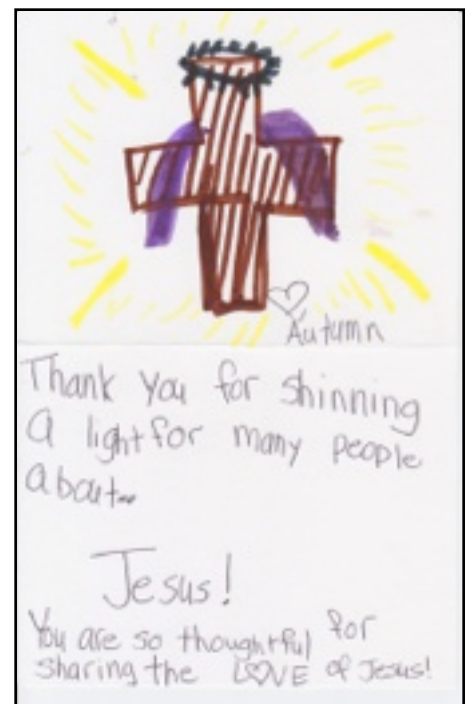 ♡
Autumn
Thank you for shinning
a light for many people
about...
Jesus!
You are so thoughtful for
sharing the L♡VE of Jesus!